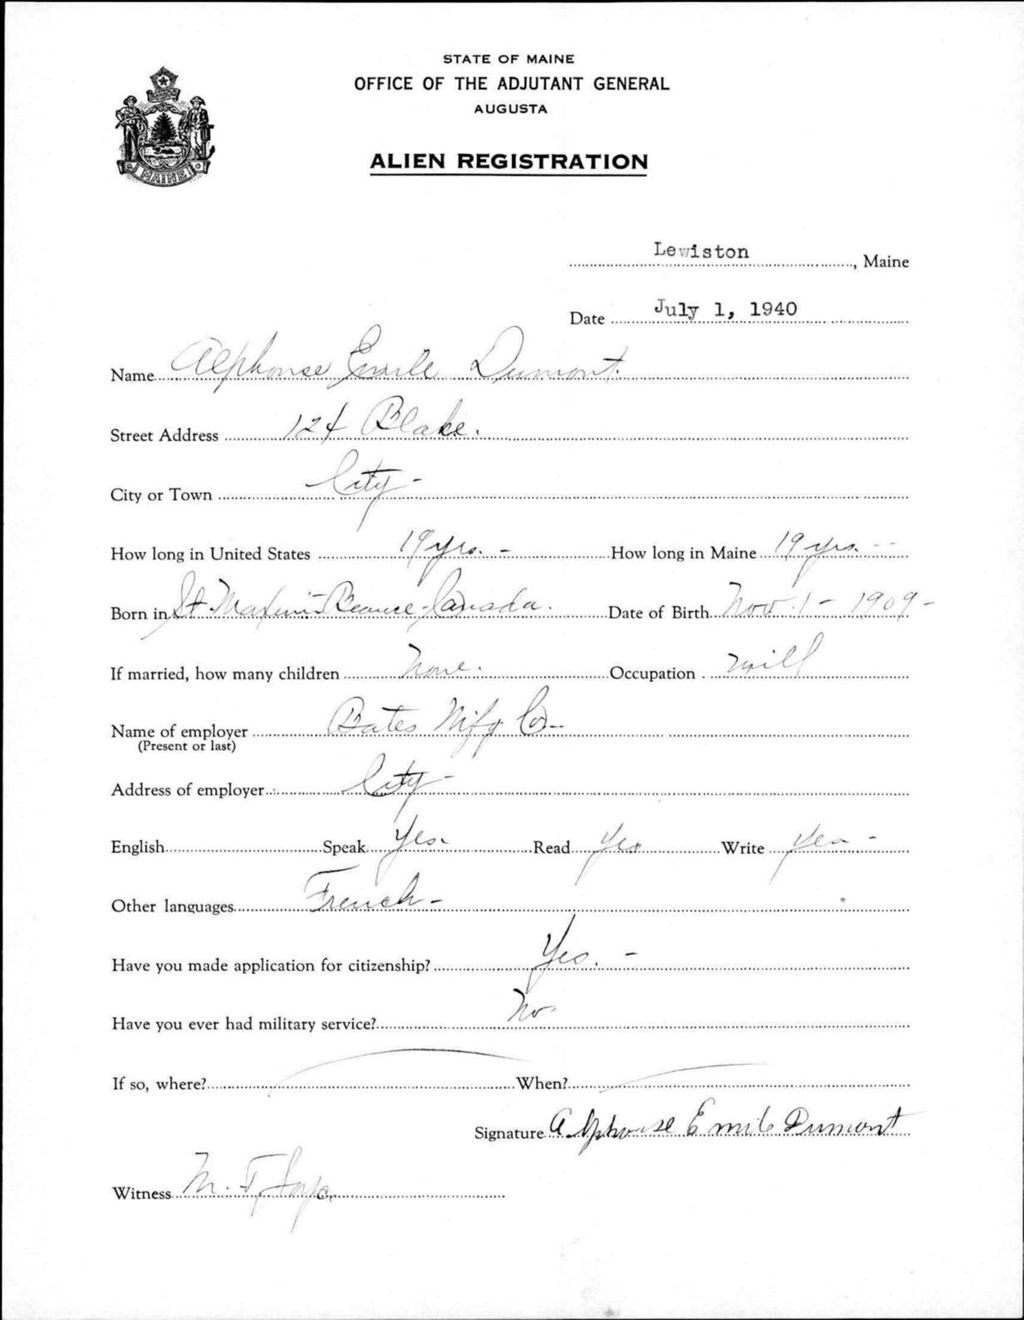 STATE OF MAINE
OFFICE OF THE ADJUTANT GENERAL
AUGUSTA
ALIEN REGISTRATION
MAINE
Lewiston, Maine
Date July 1, 1940
Name Alphonse Emile Dumont.
Street Address 124 Blake.
City or Town City -
How long in United States 19 yrs. - How long in Maine 19 yrs. - -
Born in St. Beauce - Canada. Date of Birth Nov. 1 - 1909 -
If married, how many children None. Occupation mill
Name of employer Bates Mfg. Co -
(Present or last)
Address of employer City -
English Speak Yes. Read Yes Write Yes -
Other languages French -
Have you made application for citizenship? Yes. -
Have you ever had military service? No -
If so, where? When?
Signature Alphonse Emile Dumont
Witness M.